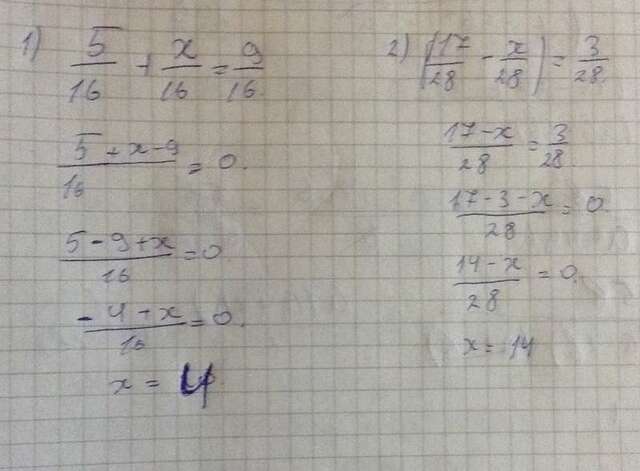 1) 5/16 + x/16 = 9/16
(5 + x - 9)/16 = 0.
(5 - 9 + x)/16 = 0
(- 4 + x)/16 = 0.
x = 4
2) (17/28 - x/28) = 3/28.
(17 - x)/28 = 3/28.
(17 - 3 - x)/28 = 0
(14 - x)/28 = 0
x = 14